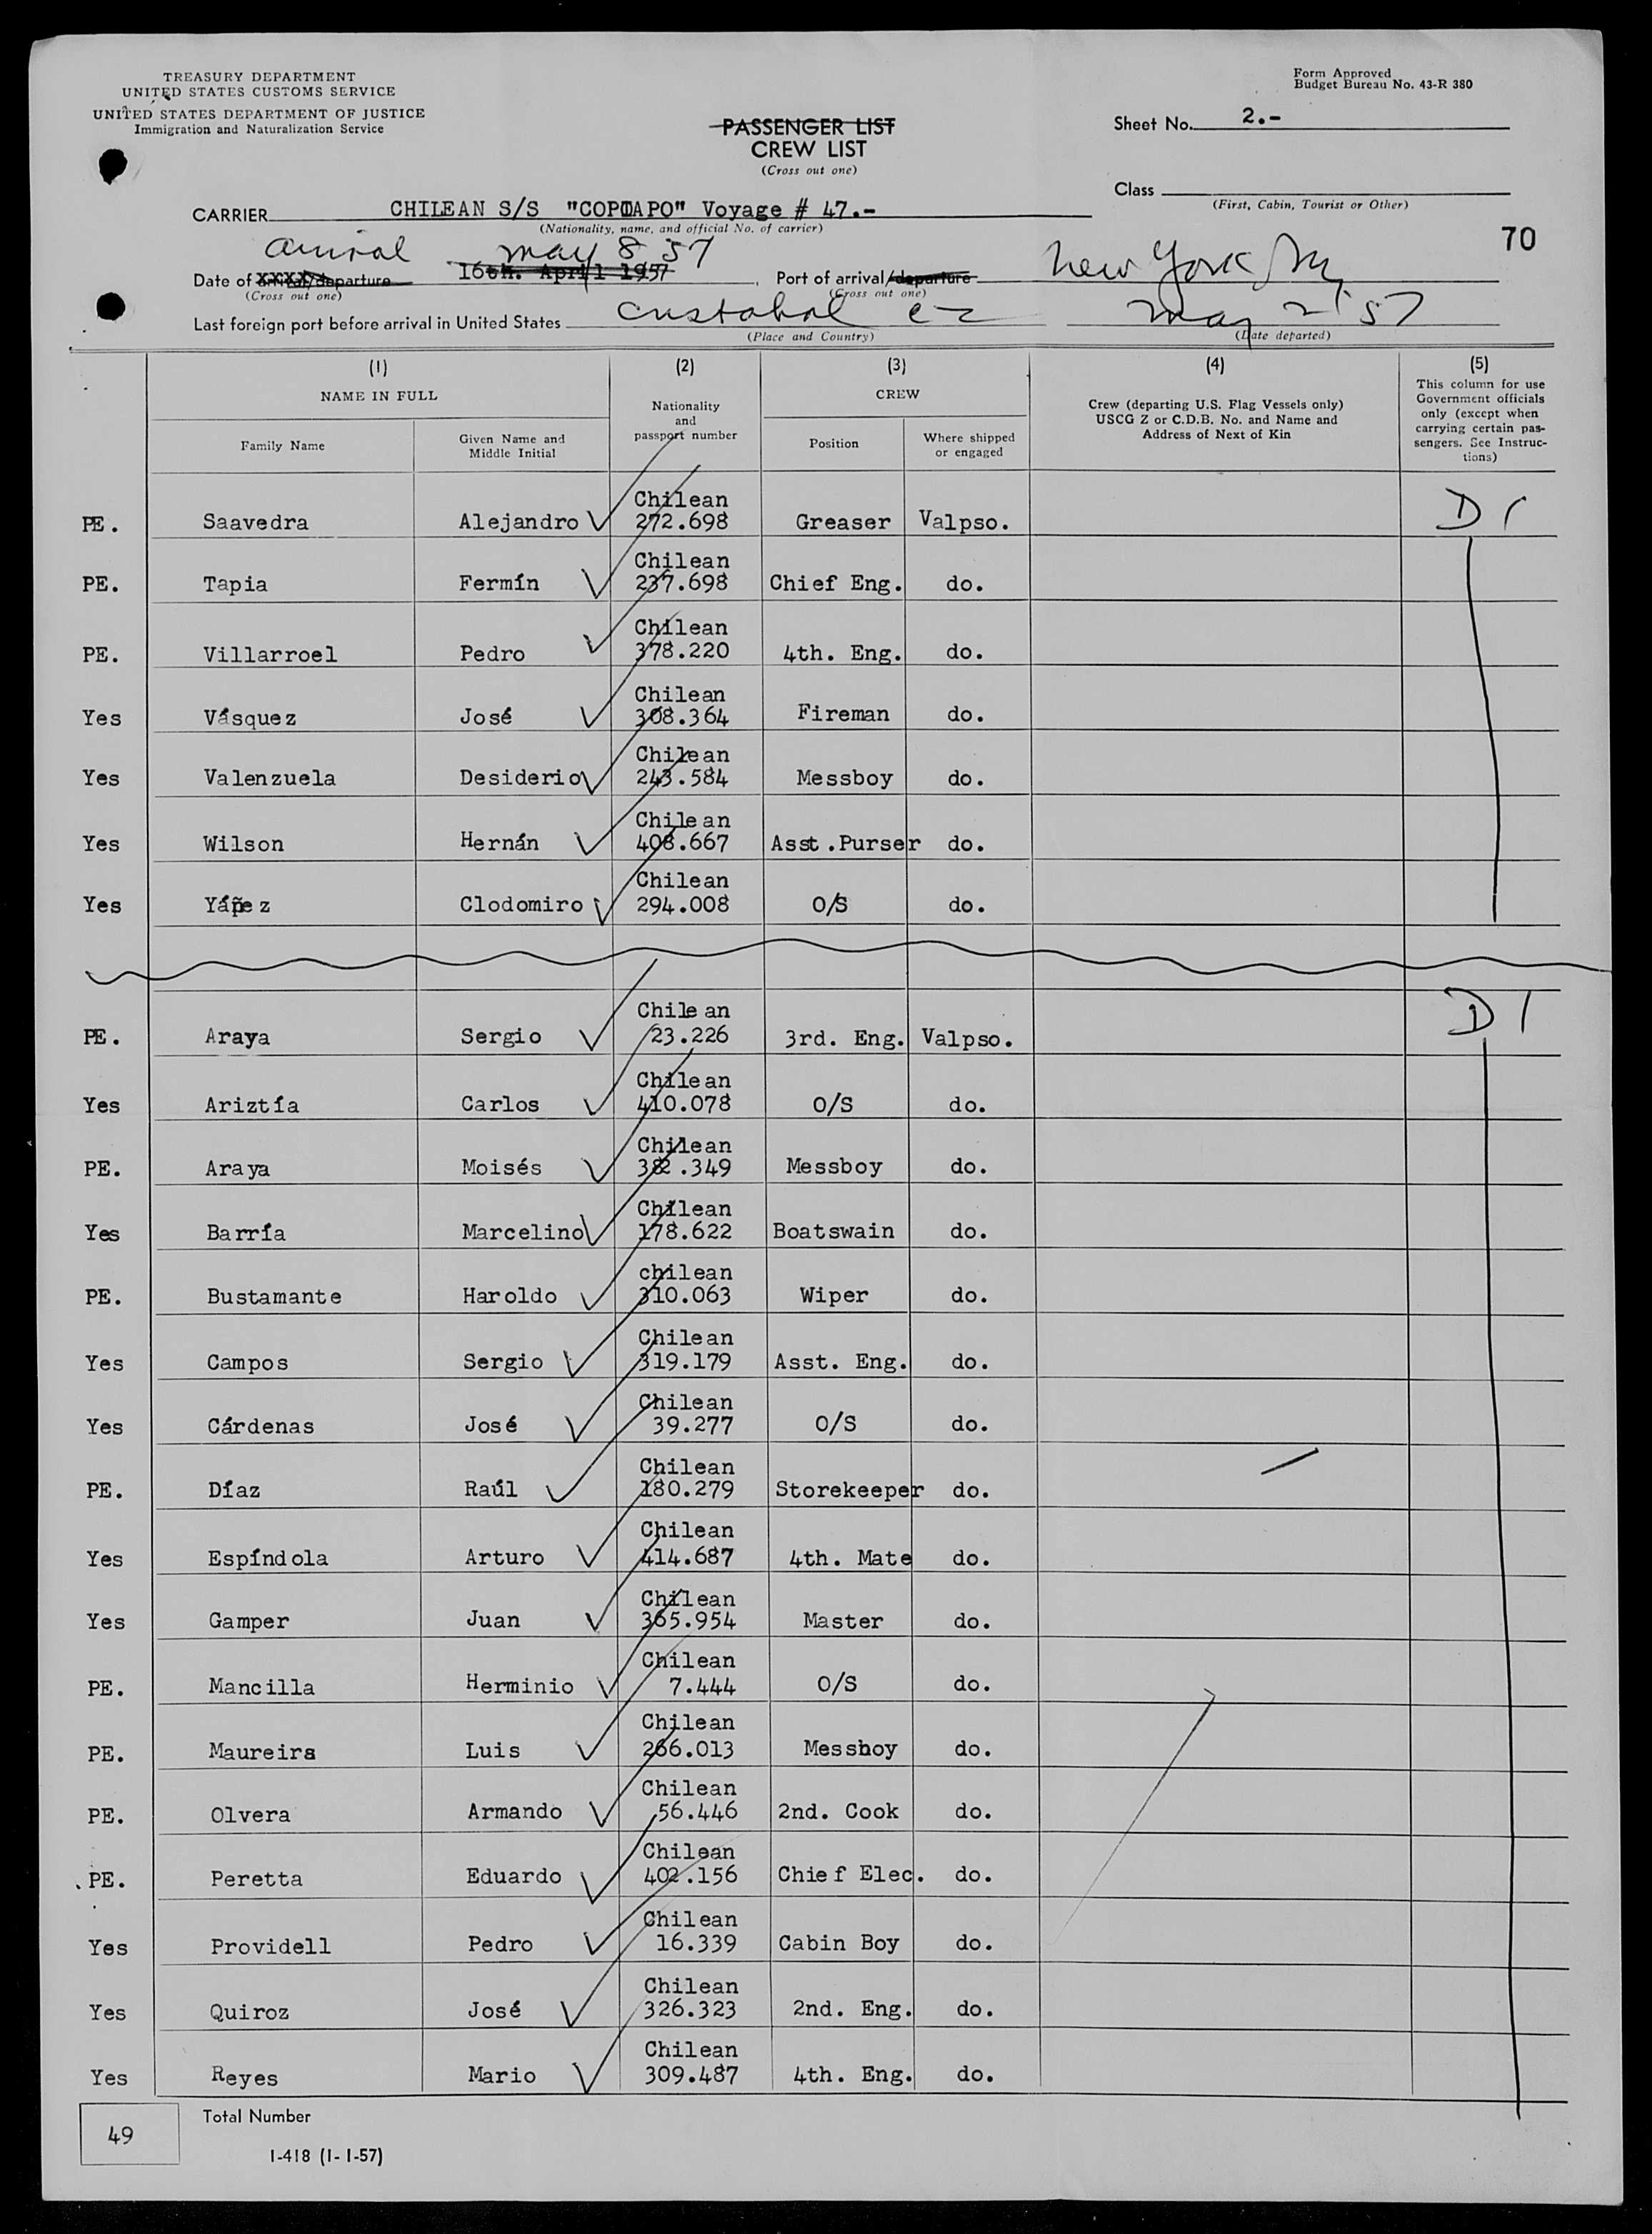 TREASURY DEPARTMENT
UNITED STATES CUSTOMS SERVICE
UNITED STATES DEPARTMENT OF JUSTICE
Immigration and Naturalization Service
Form Approved
Budget Bureau No. 43-R 380
PASSENGER LIST
CREW LIST
(Cross out one)
Sheet No. 2.-
Class
(First, Cabin, Tourist or Other)
CARRIER CHILEAN S/S "COPIAPO" Voyage # 47.-
(Nationality, name, and official No. of carrier)
70
arrival May 8 57
Date of arrival/departure 16th. April 1957, Port of arrival/departure New York Ny
(Cross out one) (Cross out one)
Last foreign port before arrival in United States Cristobal CZ May 2 '57
(Place and Country) (Date departed)
(1) (2) (3) (4) (5)
NAME IN FULL Nationality and passport number CREW Crew (departing U.S. Flag Vessels only) USCG Z or C.D.B. No. and Name and Address of Next of Kin This column for use Government officials only (except when carrying certain passengers. See Instructions)
Family Name Given Name and Middle Initial Position Where shipped or engaged
Chilean D 1
PE. Saavedra Alejandro 272.698 Greaser Valpso.
Chilean
PE. Tapia Fermín 237.698 Chief Eng. do.
Chilean
PE. Villarroel Pedro 378.220 4th. Eng. do.
Chilean
Yes Vásquez José 308.364 Fireman do.
Chilean
Yes Valenzuela Desiderio 243.584 Messboy do.
Chilean
Yes Wilson Hernán 408.667 Asst.Purser do.
Chilean
Yes Yáñez Clodomiro 294.008 O/S do.
Chilean D 1
PE. Araya Sergio 23.226 3rd. Eng. Valpso.
Chilean
Yes Ariztía Carlos 410.078 O/S do.
Chilean
PE. Araya Moisés 382.349 Messboy do.
Chilean
Yes Barría Marcelino 178.622 Boatswain do.
chilean
PE. Bustamante Haroldo 310.063 Wiper do.
Chilean
Yes Campos Sergio 319.179 Asst. Eng. do.
Chilean
Yes Cárdenas José 39.277 O/S do.
Chilean
PE. Díaz Raúl 180.279 Storekeeper do.
Chilean
Yes Espíndola Arturo 414.687 4th. Mate do.
Chilean
Yes Gamper Juan 365.954 Master do.
Chilean
PE. Mancilla Herminio 7.444 O/S do.
Chilean
PE. Maureira Luis 266.013 Messboy do.
Chilean
PE. Olvera Armando 56.446 2nd. Cook do.
Chilean
PE. Peretta Eduardo 402.156 Chief Elec. do.
Chilean
Yes Providell Pedro 16.339 Cabin Boy do.
Chilean
Yes Quiroz José 326.323 2nd. Eng. do.
Chilean
Yes Reyes Mario 309.487 4th. Eng. do.
49 Total Number
I-418 (1-1-57)